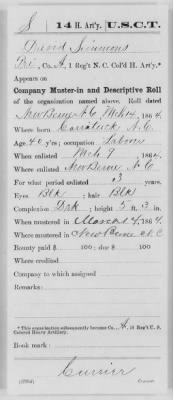 S 14 H. Art'y. U.S.C.T.
David Simmons
Pvt, Co. A, 1 Reg't N. C. Col'd H. Art'y.*
Appears on
Company Muster-in and Descriptive Roll
of the organization named above. Roll dated
New Berne N.C. Mch 14, 1864.
Where born Currituck N.C.
Age 40 y'rs; occupation Laborer
When enlisted Mch 7, 1864.
Where enlisted New Berne N.C.
For what period enlisted 3 years.
Eyes Blk; hair Blk
Complexion Drk; height 5 ft. 3 in.
When mustered in March 14, 1864.
Where mustered in New Berne N.C.
Bounty paid $ 100; due $ 100
Where credited
Company to which assigned
Remarks:
* This organization subsequently became Co. A, 14 Reg't U. S.
Colored Heavy Artillery.
Book mark:
Currier